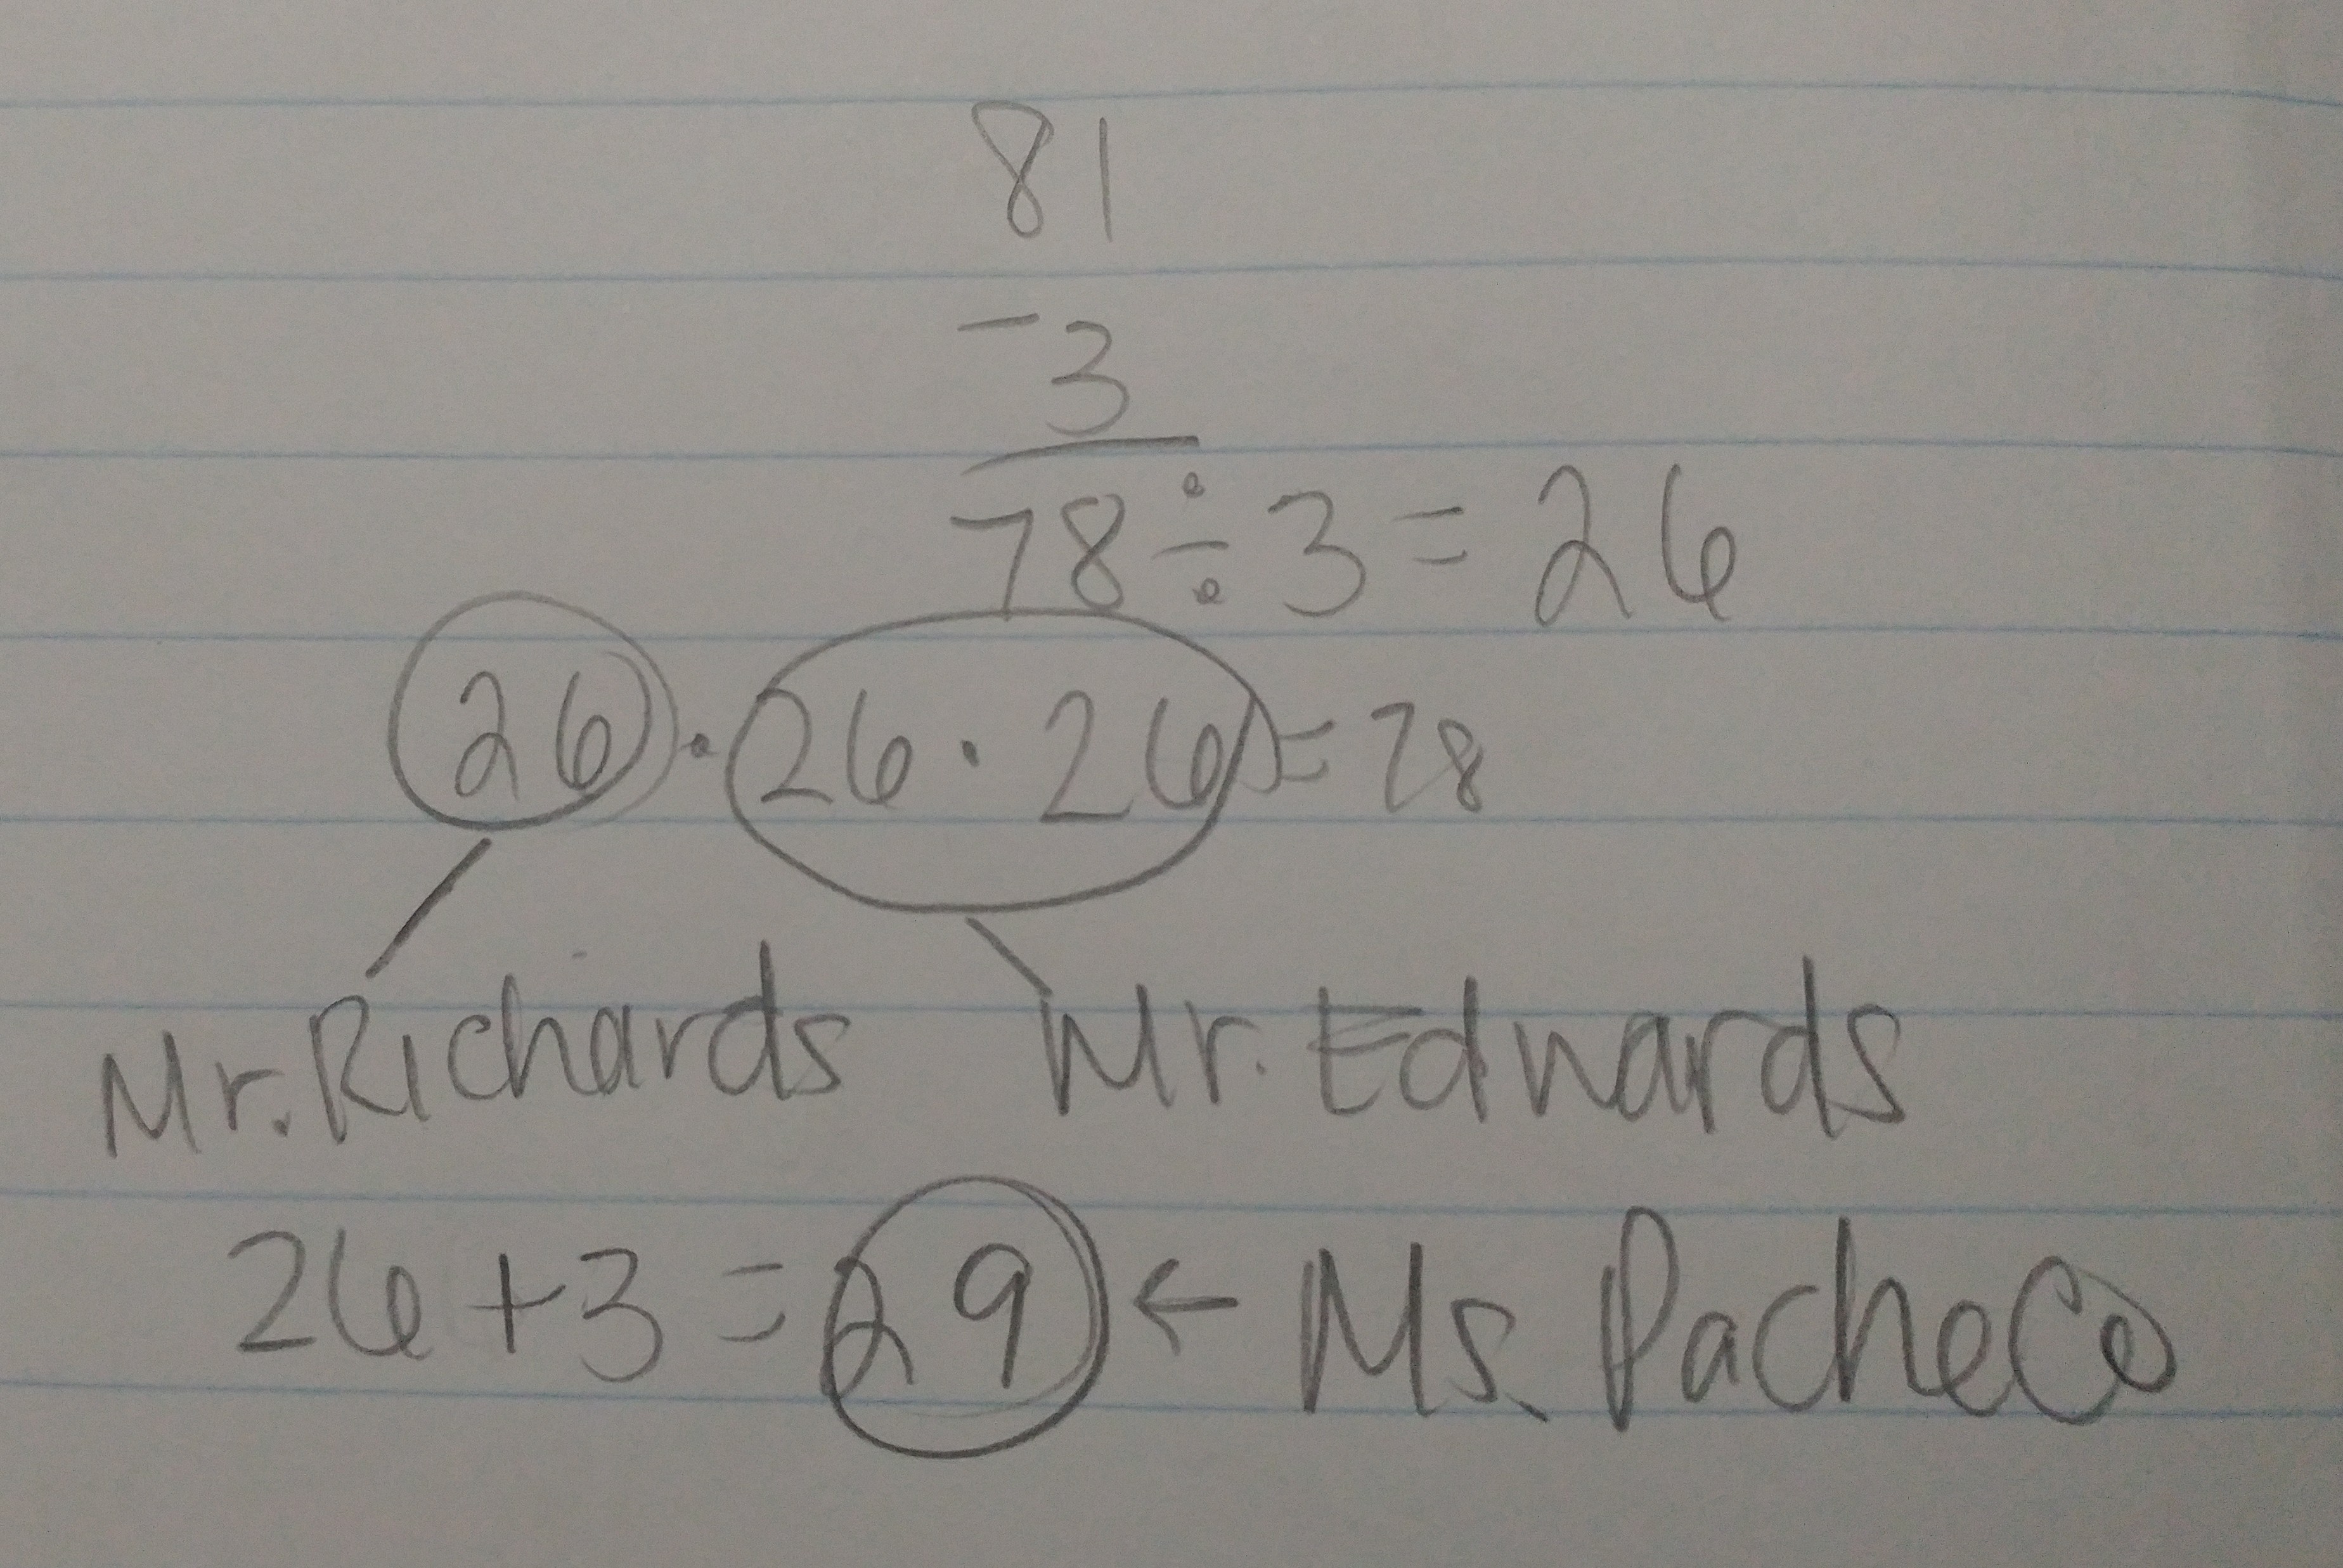 81
-3
78÷3=26
26·26·26=78
Mr. Richards Mr. Edwards
26+3=29 ← Ms. Pacheco